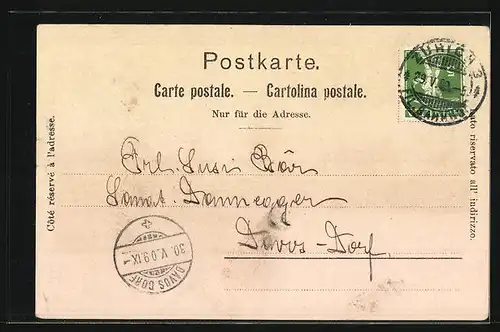 Postkarte.
Carte postale. — Cartolina postale.
Nur für die Adresse.
Côté réservé à l'adresse.
Lato riservato all' indirizzo.
ZÜRICH 3
Frl. Susi Bär
Sanat. Dannegger
Davos-Dorf
30. V. 09. IX
DAVOS DORF